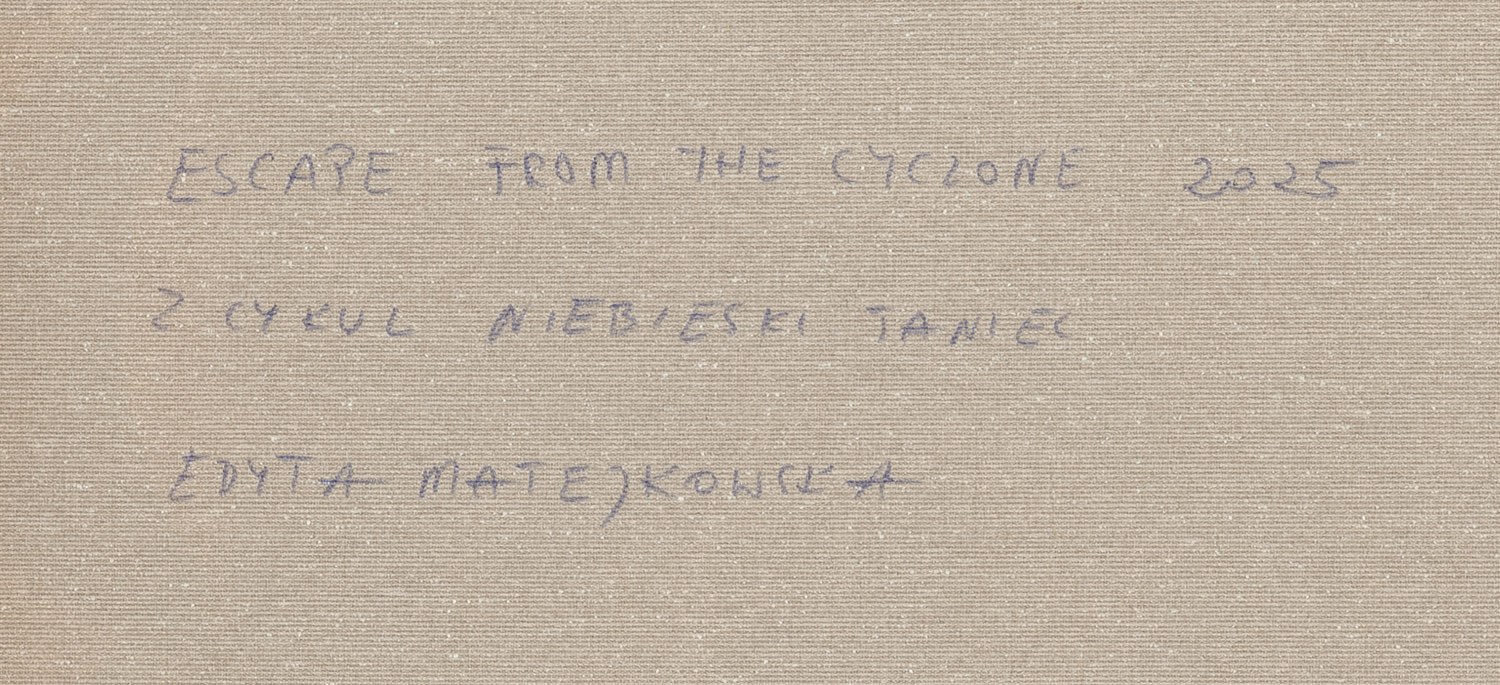 ESCAPE FROM THE CYCLONE 2025
Z CYKUL NIEBIESKI TANIEC
EDYTA MATEJKOWSKA